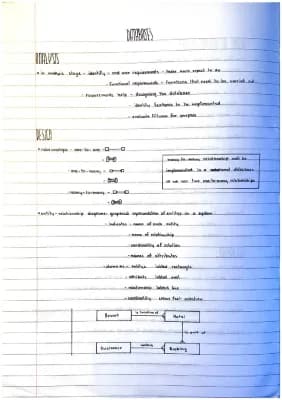 DATABASES
ANALYSIS
• in analysis stage - identify - end user requirements - tasks users expect to do
- functional requirements - functions that need to be carried out
- requirements help - designing the database
- identify features to be implemented
- evaluate fitness for purpose
DESIGN
- one-to-one
- one-to-many
- many-to-many
many-to-many relationship will be
implemented in a relational database
as we use two one-to-many relationships
• entity-relationship diagrams: graphical representation of entities in a system
- indicates - name of each entity
- name of relationship
- cardinality of relation
- names of attributes
- entities - labelled rectangle
- attribute - labelled oval
- relationship - labelled line
- cardinality - crows foot notation
Resort
is location of
Hotel
is part of
Customer
makes
Booking